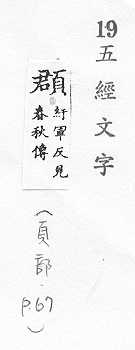 19 五經文字
頵 紆軍反見
春秋傳
(頁部. p.67)